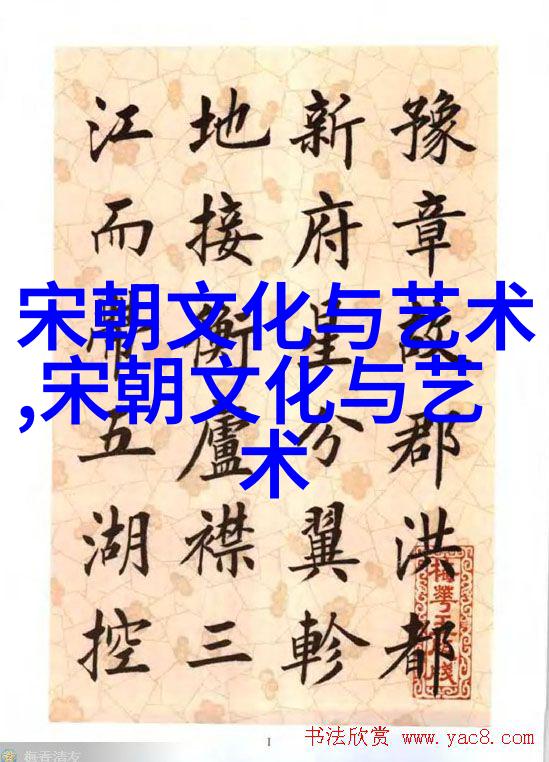 豫章故郡洪都
新府星分翼軫
地接衡廬襟三
江而帶五湖控
宋朝文化与艺术
,宋朝文化与艺
术
1
书法欣赏 www.yac8.com